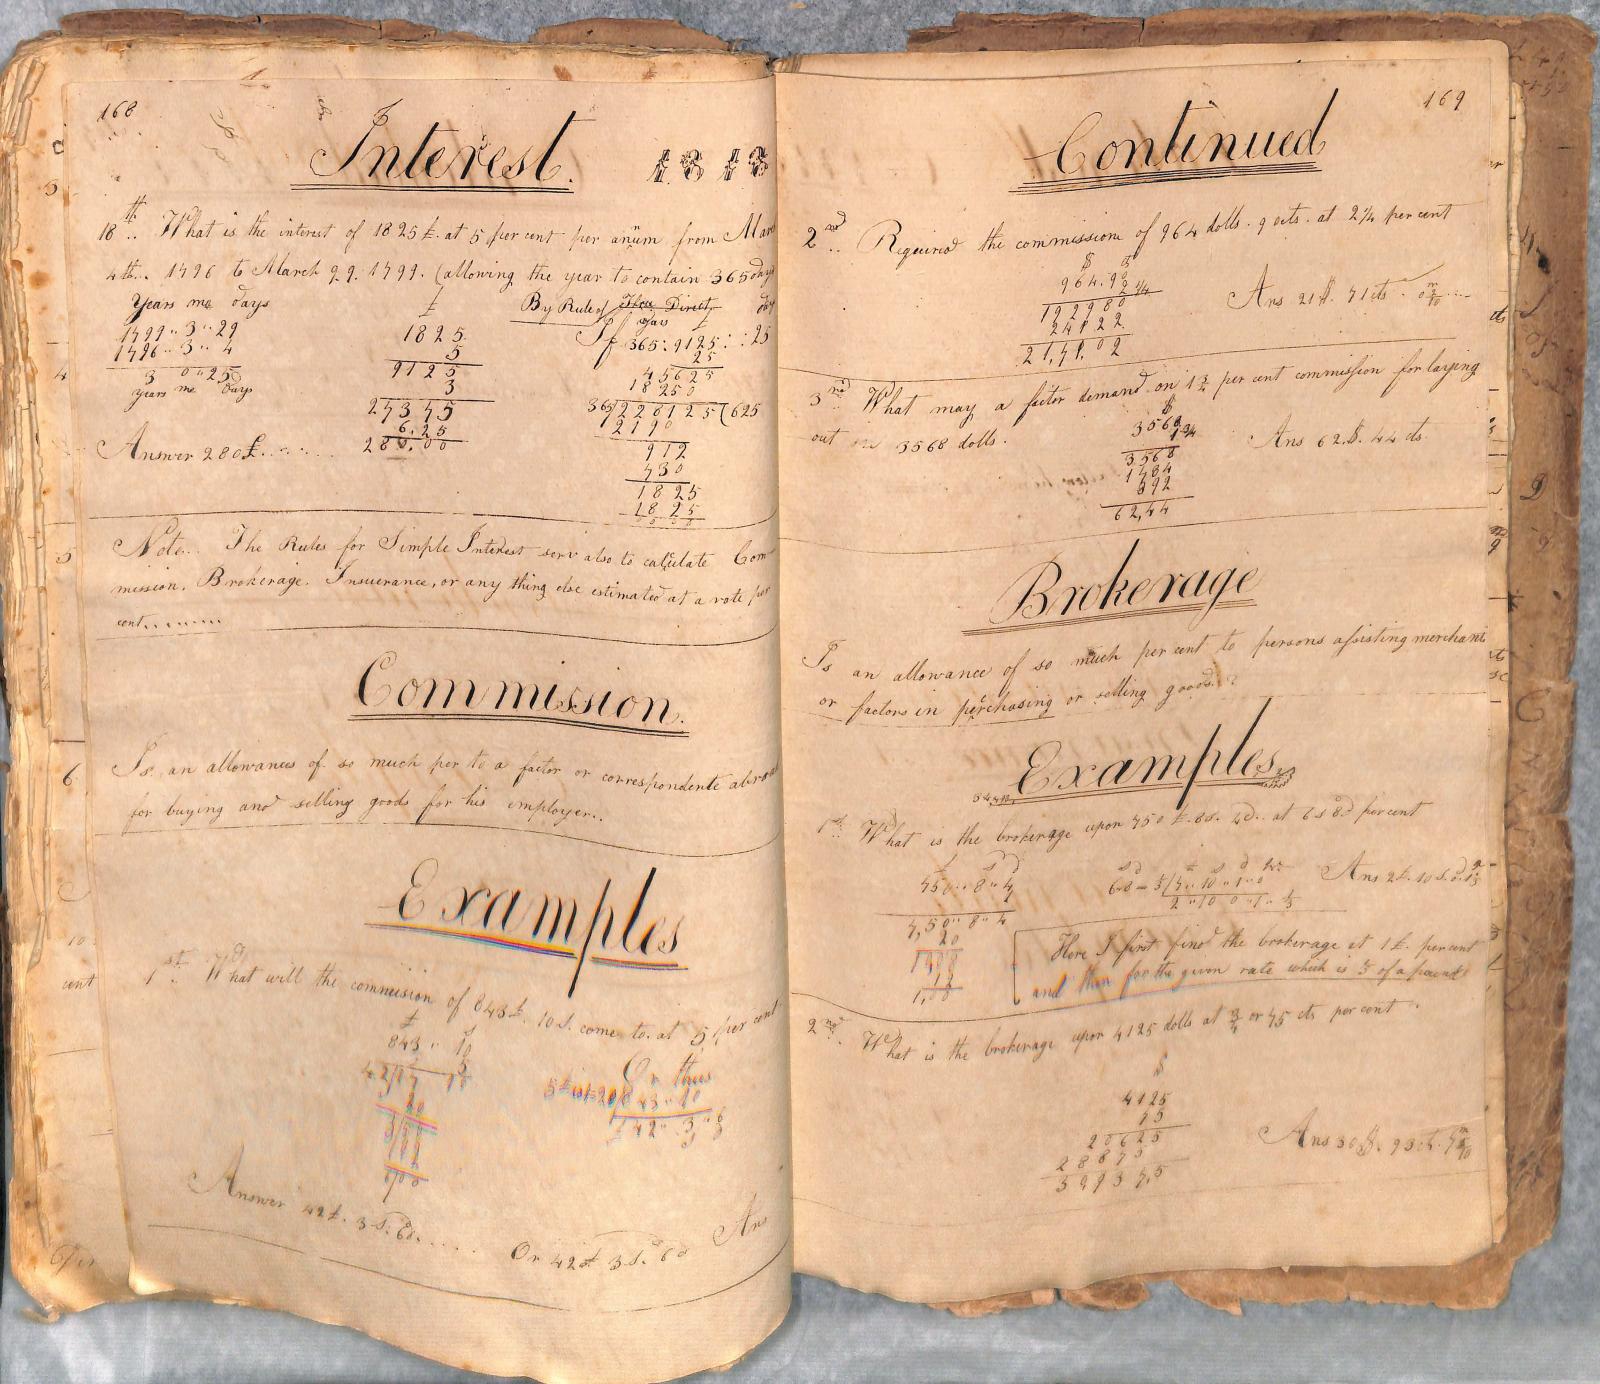 168
Interest. 1818
18th.. What is the interest of 1825£. at 5 per cent per anum from Mar
4th.. 1796 to March 29. 1799. (allowing the year to contain 365 days
Years mo days £ By Rule of Three Direct
1799 " 3 " 29
1796 " 3 " 4
3 " 0 " 25
years mo days
1825
5
9125
3
27375
6.25
280.00
Answer 280£
If 365 : 9125 : : 25
25
45625
18250
365)228125(625
2190
912
730
1825
1825
0000
Note.. The Rules for Simple Interest serv also to calculate Com
mission, Brokerage. Insuerance, or any thing else estimated at a rate per
cent
Commission.
Is an allowances of so much per to a factor or correspondente abroad
for buying and selling goods for his employer..
Examples
1st. What will the commision of 843£. 10S. come to. at 5 per cent
£ S
843 " 10
5
42/17 10
20
3/50
12
6/00
Or thus
5£ is 1/20)843 " 10
£42 " 3 " 6
Answer 42£. 3S. 6d.
Or 42£ 3S. 6d Ans
169
Continued
2nd.. Required the commission of 964 dolls. 90 cts. at 2 1/4 per cent
$
964.90
2 1/4
192980
24122
21,71.02
Ans 21$. 71 cts.
3rd What may a factor demand on 1 3/4 per cent commission for laying
out 3568 dolls.
$
3568
1 3/4
3568
1784
892
62,44
Ans 62.$. 44 cts.
Brokerage
Is an allowance of so much per cent to persons assisting merchants
or factors in perchasing or selling goods
Examples
1st. What is the brokerage upon 750£. 8s. 4d.. at 6s 8d per cent
£ s d
750 " 8 " 4
7,50 " 8 " 4
20
10,08
12
1,00
s d £ s d
6 8 = 1/3)7 " 10 " 1 " 0
2 " 10 " 0 " 1/3
Ans 2£. 10S.
Here I first find the brokerage at 1£. per cent
and then for the given rate which is 1/3 of a pound
2nd. What is the brokerage upon 4125 dolls at 3/4 or 75 cts per cent
$
4125
75
20625
28875
3093 7,5
Ans 30$. 93 ct. 7 5/10